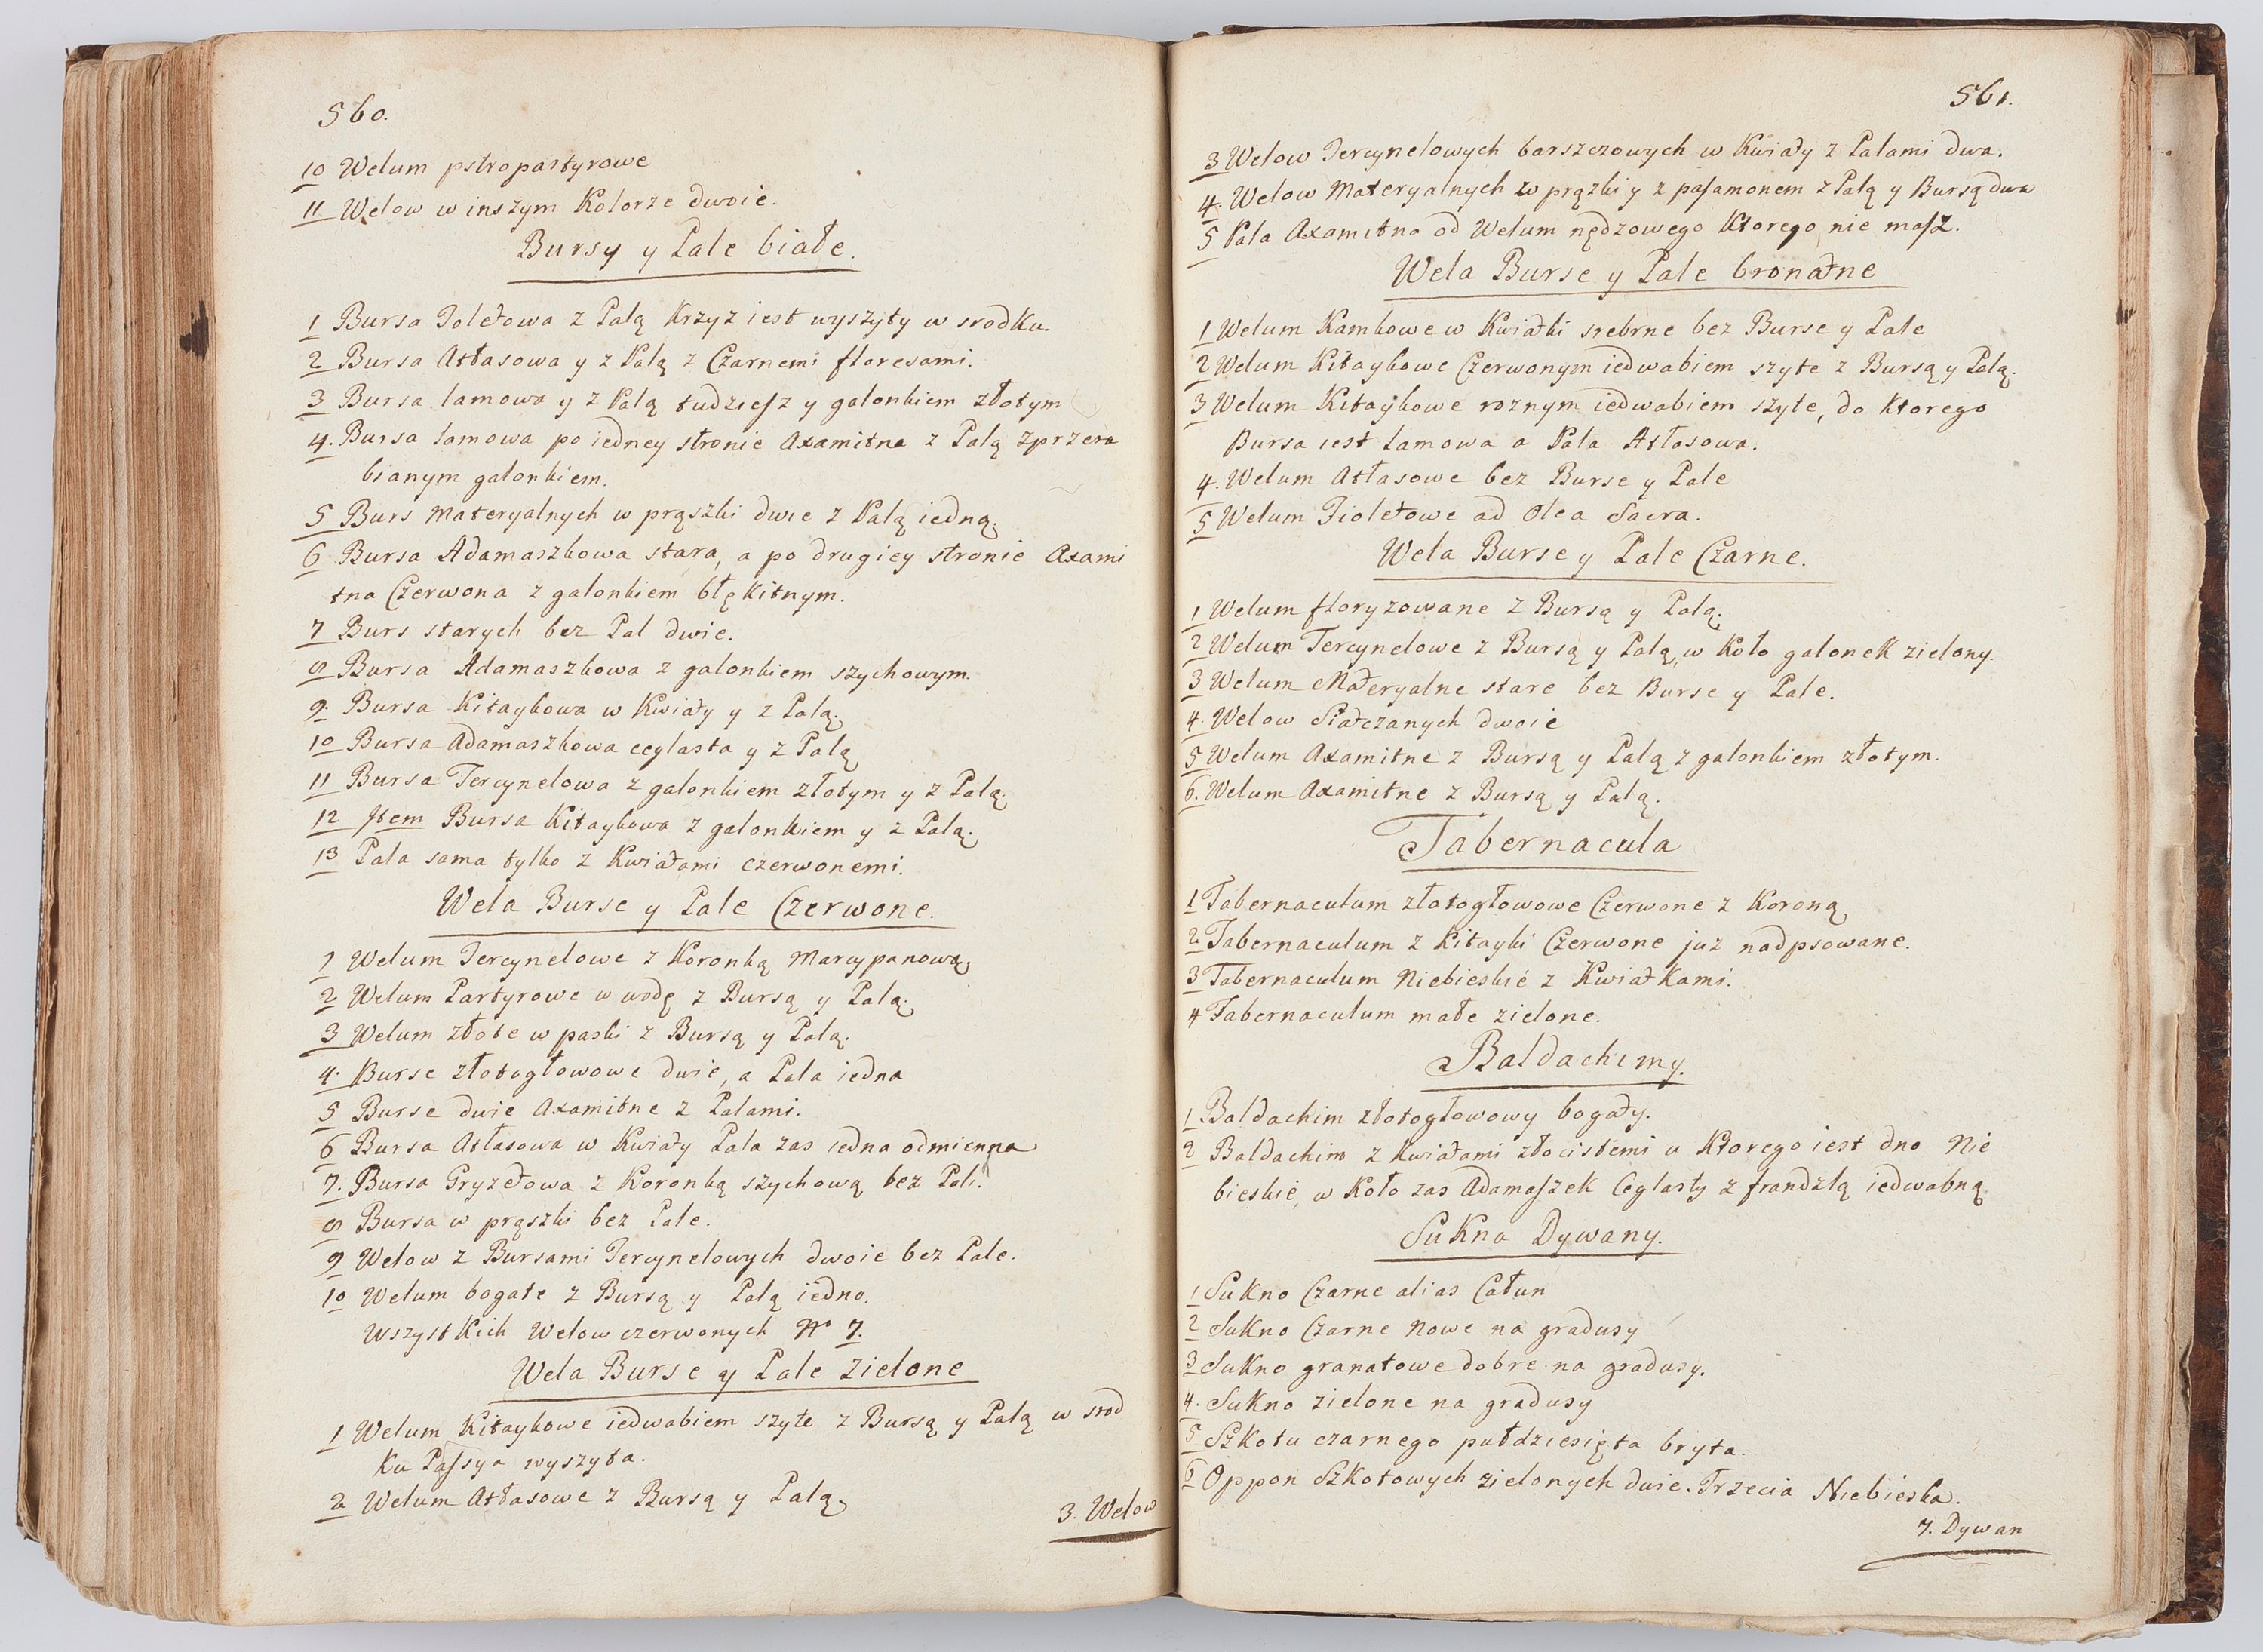 560.
10 Welum pstropartyrowe
11 Welow w inszym Kolorze dwoie.
Bursy y Pale białe.
1 Bursa Toletowa z Palą Krzyz iest wyszyty w srodku.
2 Bursa Atłasowa y z Palą z Czarnemi floresami.
3 Bursa lamowa y z Palą tudziesz y galonkiem złotym
4. Bursa lamowa po iedney stronie Axamitna z Palą zprzera
bianym galonkiem.
5 Burs Materyalnych w prąszki dwie z Palą iedną.
6 Bursa Adamaszkowa stara, a po drugiey stronie Axami
tna Czerwona z galonkiem błękitnym.
7 Burs starych bez Pal dwie.
8 Bursa Adamaszkowa z galonkiem szychowym.
9. Bursa Kitaykowa w Kwiaty y z Palą.
10 Bursa Adamaszkowa ceglasta y z Palą
11 Bursa Tercynelowa z galonkiem złotym y z Palą.
12 Item Bursa Kitaykowa z galonkiem y z Palą.
13 Pala sama tylko z Kwiatami czerwonemi.
Wela Burse y Pale Czerwone.
1 Welum Tercynelowe z Koronką Marcypanową
2 Welum Partyrowe w wodę z Bursą y Palą.
3 Welum złote w paski z Bursą y Palą.
4. Burse złotogłowowe dwie, a Pala iedna
5 Burse dwie Axamitne z Palami.
6 Bursa Atłasowa w Kwiaty Pala zas iedna odmienna
7. Bursa Gryzetowa z Koronką szychową bez Pali.
8 Bursa w prąszki bez Pale.
9 Welow z Bursami Tercynelowych dwoie bez Pale.
10 Welum bogate z Bursą y Palą iedno.
Wszystkich Welow czerwonych No 7.
Wela Burse y Pale zielone
1 Welum Kitaykowe iedwabiem szyte z Bursą y Palą w srod
Ku Passya wyszyta.
2 Welum Atłasowe z Bursą y Palą
3. Welow
561.
3 Welow Tercynelowych barszczowych w Kwiaty z Palami dwa.
4. Welow Materyalnych w prązki y z pasamonem z Palą y Bursą dwa
5 Pala Axamitna od Welum nędzowego Ktorego nie masz.
Wela Burse y Pale bronatne
1 Welum Kamkowe w Kwiatki srebrne bez Burse y Pale
2 Welum Kitaykowe Czerwonym iedwabiem szyte z Bursą y Palą.
3 Welum Kitaykowe roznym iedwabiem szyte, do Ktorego
Bursa iest Lamowa a Pala Atłasowa.
4. Welum Atłasowe bez Burse y Pale
5 Welum Fioletowe ad Olea Sacra.
Wela Burse y Pale Czarne.
1 Welum floryzowane z Bursą y Palą.
2 Welum Tercynelowe z Bursą y Palą, w Koło galonek zielony.
3 Welum Materyalne stare bez Burse y Pale.
4. Welow Siatczanych dwoie
5 Welum Axamitne z Bursą y Palą z galonkiem złotym.
6. Welum Axamitne z Bursą y Palą.
Tabernacula
1 Tabernaculum złotogłowowe Czerwone z Koroną
2 Tabernaculum z Kitayki Czerwone juz nadpsowane.
3 Tabernaculum Niebieskie z Kwiatkami.
4 Tabernaculum małe zielone.
Baldachimy.
1 Baldachim złotogłowowy bogaty.
2 Baldachim z Kwiatami złocistemi u Ktorego iest dno Nie
bieskie, w Koło zas Adamaszek Ceglasty z frandzlą iedwabną.
Sukna Dywany.
1 Sukno Czarne alias Całun
2 Sukno Czarne Nowe na gradusy
3 Sukno granatowe dobre na gradusy.
4. Sukno zielone na gradusy
5 Szkotu czarnego pułdziesięta bryta.
6 Oppon Szkotowych zielonych dwie. Trzecia Niebieska.
7. Dywan